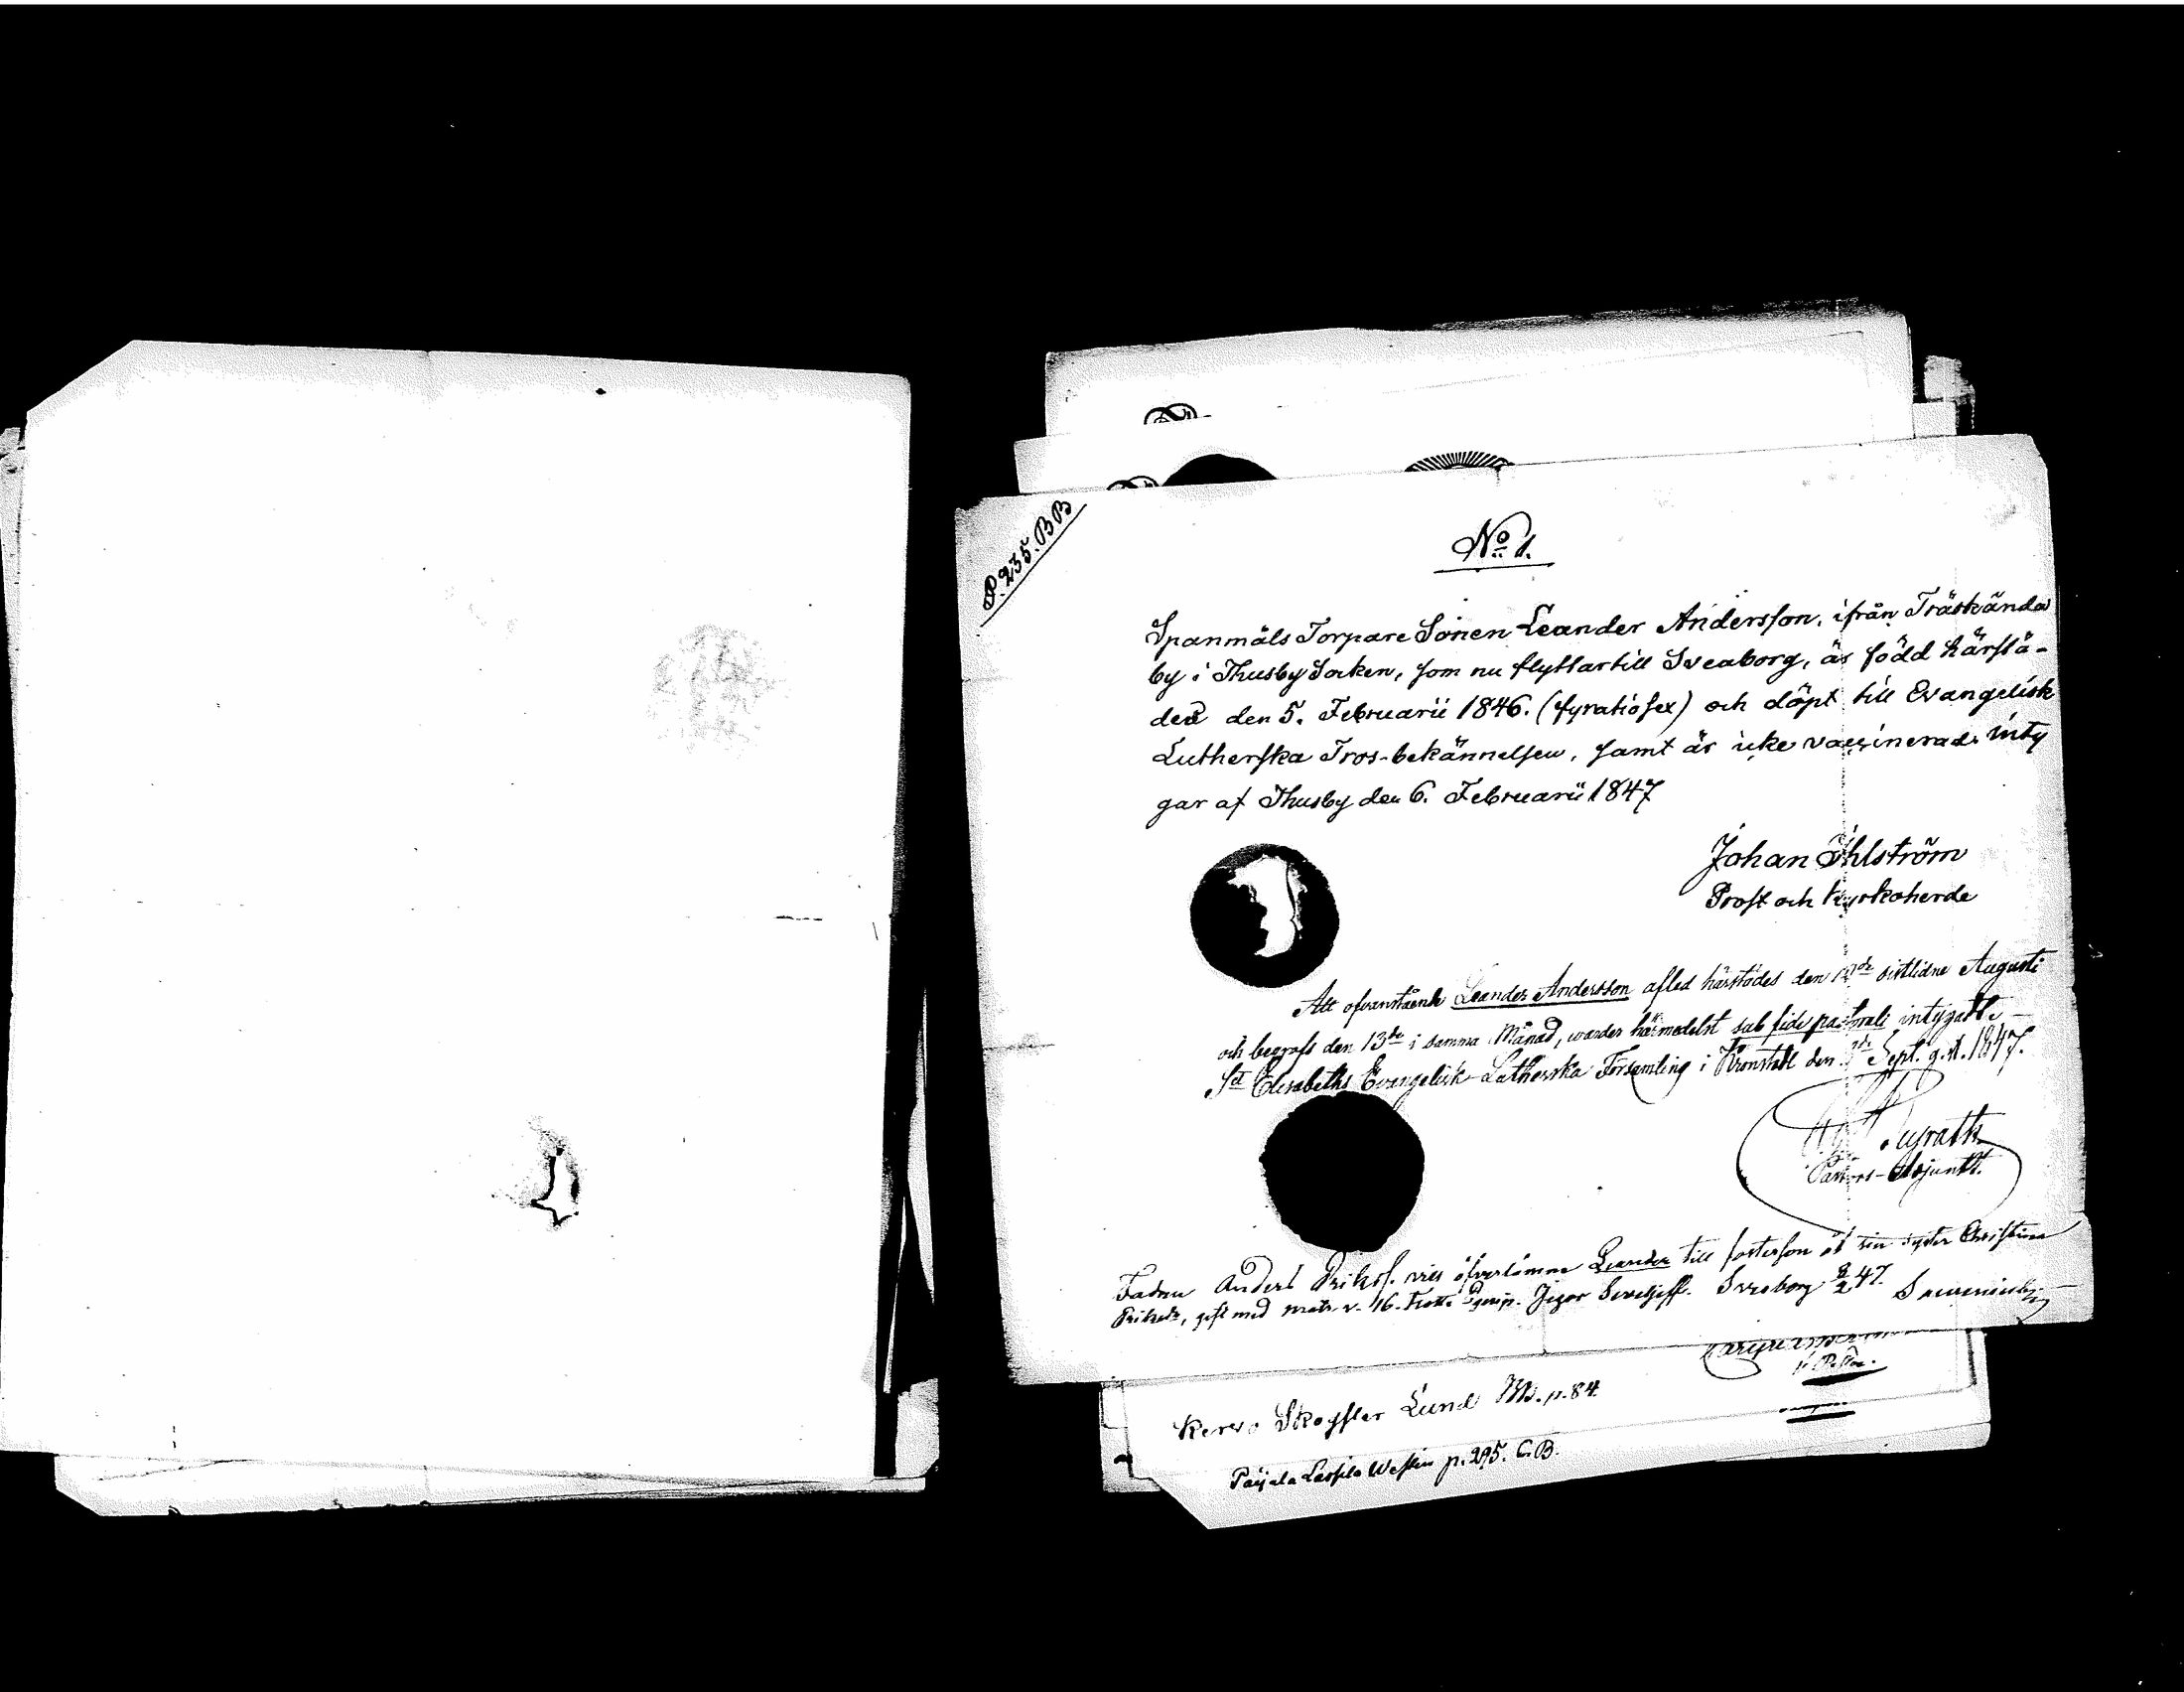 P. 235. BB
No 1.
Spanmåls Torpare Sonen Leander Andersson, ifrån Träskända
by i Thusby Socken, som nu flyttar till Sveaborg, är född härstä-
des den 5. Februarii 1846. (fyratiosex) och döpt till Evangelisk
Lutherska Tros-bekännelsen, samt är icke vaccinerad. inty
gar af Thusby den 6. Februarii 1847
Johan Öhlström
Prost och Kyrkoherde
Att ofvanstående Leander Andersson afled härstädes den sistlidne Augusti
och begrofs den 13de i samma Månad, warder härmedelst sub fide pastorali intygadt.
St Elisabeths Evangelisk-Lutherska Församling i Kronstadt den Sept. g. st. 1847.
Pastors-Adjunkt.
Fadren Anders vill öfverlämna Leander till fosterson åt sin syster Christina
gift med matr. v. 16. Jegor Sveaborg 8/2 47.
Kervo Skogster Lund Ms. p. 84.
Paijala Lassila Westin p. 295. C.B.